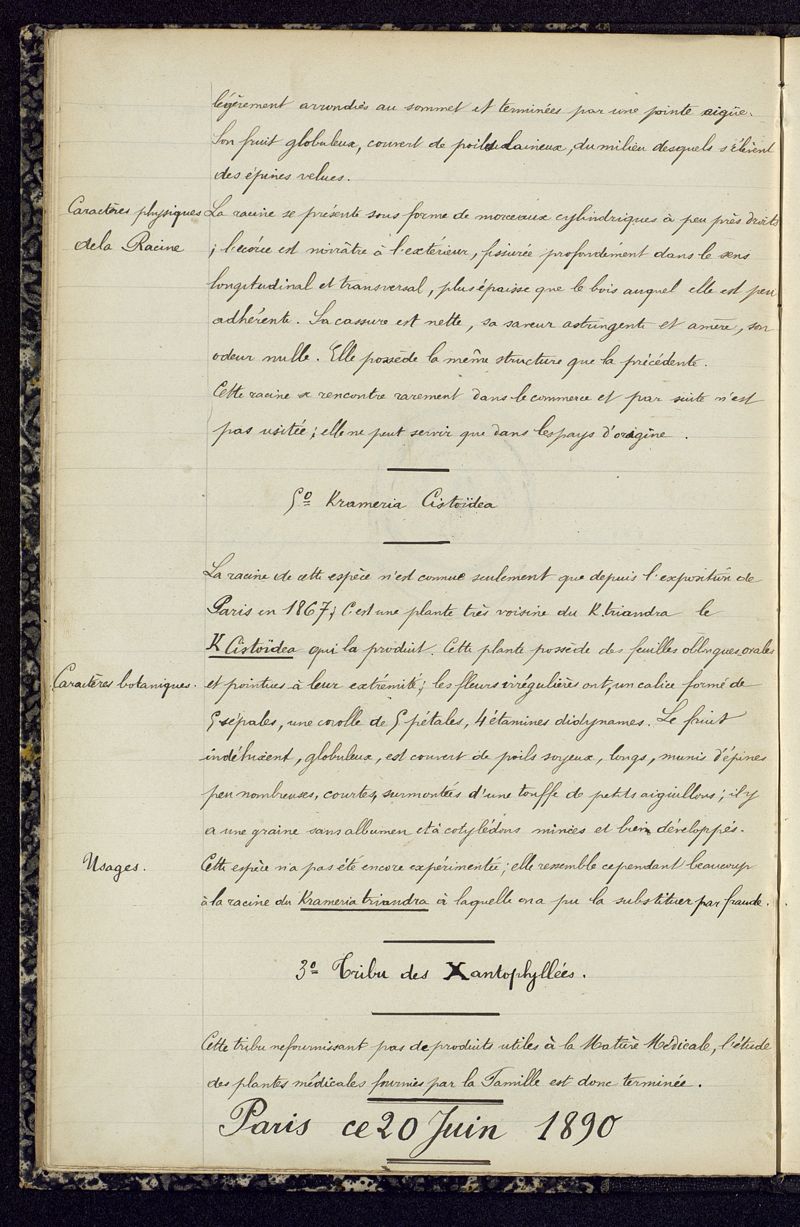 légèrement arrondies au sommet et terminées par une pointe aigüe.
Son fruit globuleux, couvert de poils laineux, du milieu desquels s'élèvent
des épines velues.
Caractères physiques
de la Racine
La racine se présente sous forme de morceaux cylindriques à peu près droits
; l'écorce est noirâtre à l'extérieur, fissurée profondément dans le sens
longitudinal et transversal, plus épaisse que le bois auquel elle est peu
adhérente. Sa cassure est nette, sa saveur astringente et amère, son
odeur nulle. Elle possède la même structure que la précédente.
Cette racine se rencontre rarement dans le commerce et par suite n'est
pas usitée ; elle ne peut servir que dans les pays d'origine.
5º Krameria Cistoïdea
La racine de cette espèce n'est connue seulement que depuis l'exposition de
Paris en 1867 ; C'est une plante très voisine du K. triandra le
K Cistoïdea qui la produit. Cette plante possède des feuilles oblongues, ovales
Caractères botaniques.
et pointues à leur extrémité ; les fleurs irrégulières ont, un calice formé de
5 sépales, une corolle de 5 pétales, 4 étamines didynames. Le fruit
indéhiscent, globuleux, est couvert de poils soyeux, longs, munis d'épines
peu nombreuses, courtes, surmontées d'une touffe de petits aiguillons ; il y
a une graine sans albumen et à cotylédons minces et bien développés.
Usages.
Cette espèce n'a pas été encore expérimentée ; elle ressemble cependant beaucoup
à la racine du Krameria triandra à laquelle on a pu la substituer par fraude.
3º Tribu des Xantophyllées.
Cette tribu ne fournissant pas de produits utiles à la Matière Médicale, l'étude
des plantes médicales fournies par la Famille est donc terminée.
Paris ce 20 Juin 1890